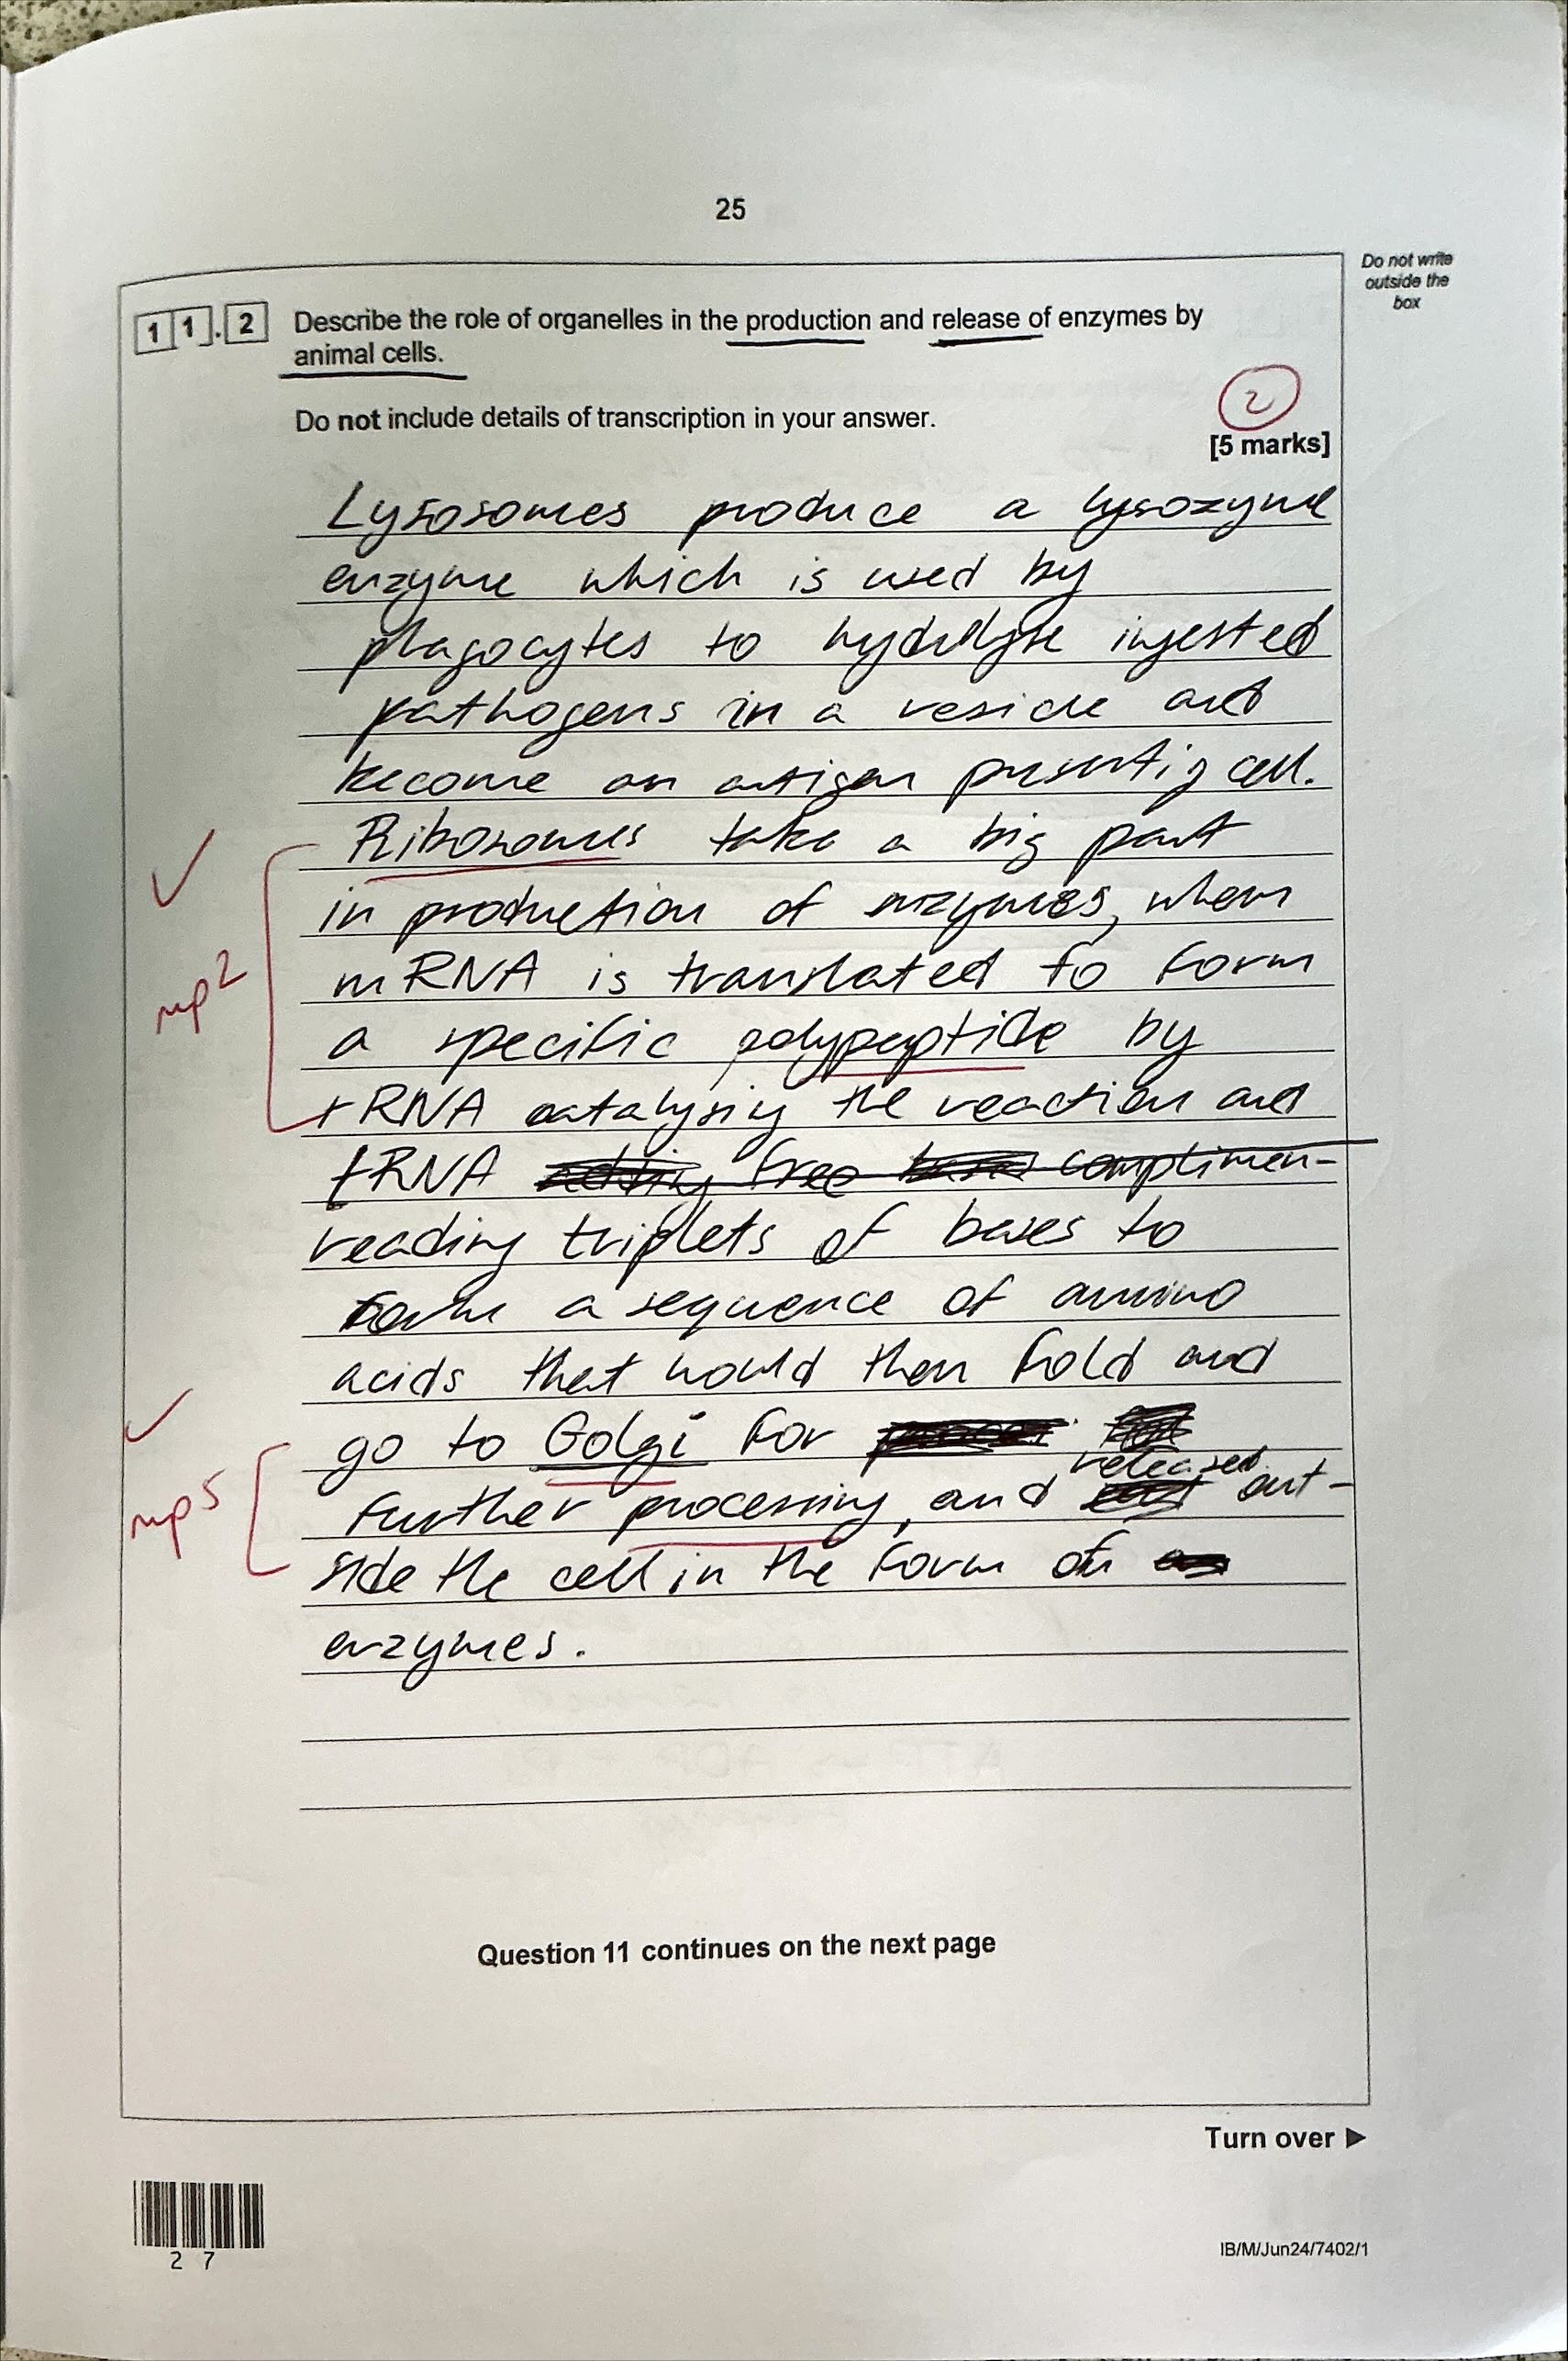 25
Do not write
outside the
box
1 1 . 2 Describe the role of organelles in the production and release of enzymes by
animal cells.
Do not include details of transcription in your answer.
2
[5 marks]
Lysosomes produce a lysozyme
enzyme which is used by
phagocytes to hydrolyse ingested
pathogens in a vesicle and
become an antigen presentig cell.
Ribosomes take a big part
in production of enzymes, when
mRNA is translated to form
mp2
a specific polypeptide by
rRNA catalysing the reaction and
tRNA free complimen-
reading triplets of bases to
form a sequence of amino
acids that would then fold and
go to Golgi for
released
further processing, and out-
mp5
side the cell in the form of
enzymes.
Question 11 continues on the next page
Turn over ►
2 7
IB/M/Jun24/7402/1